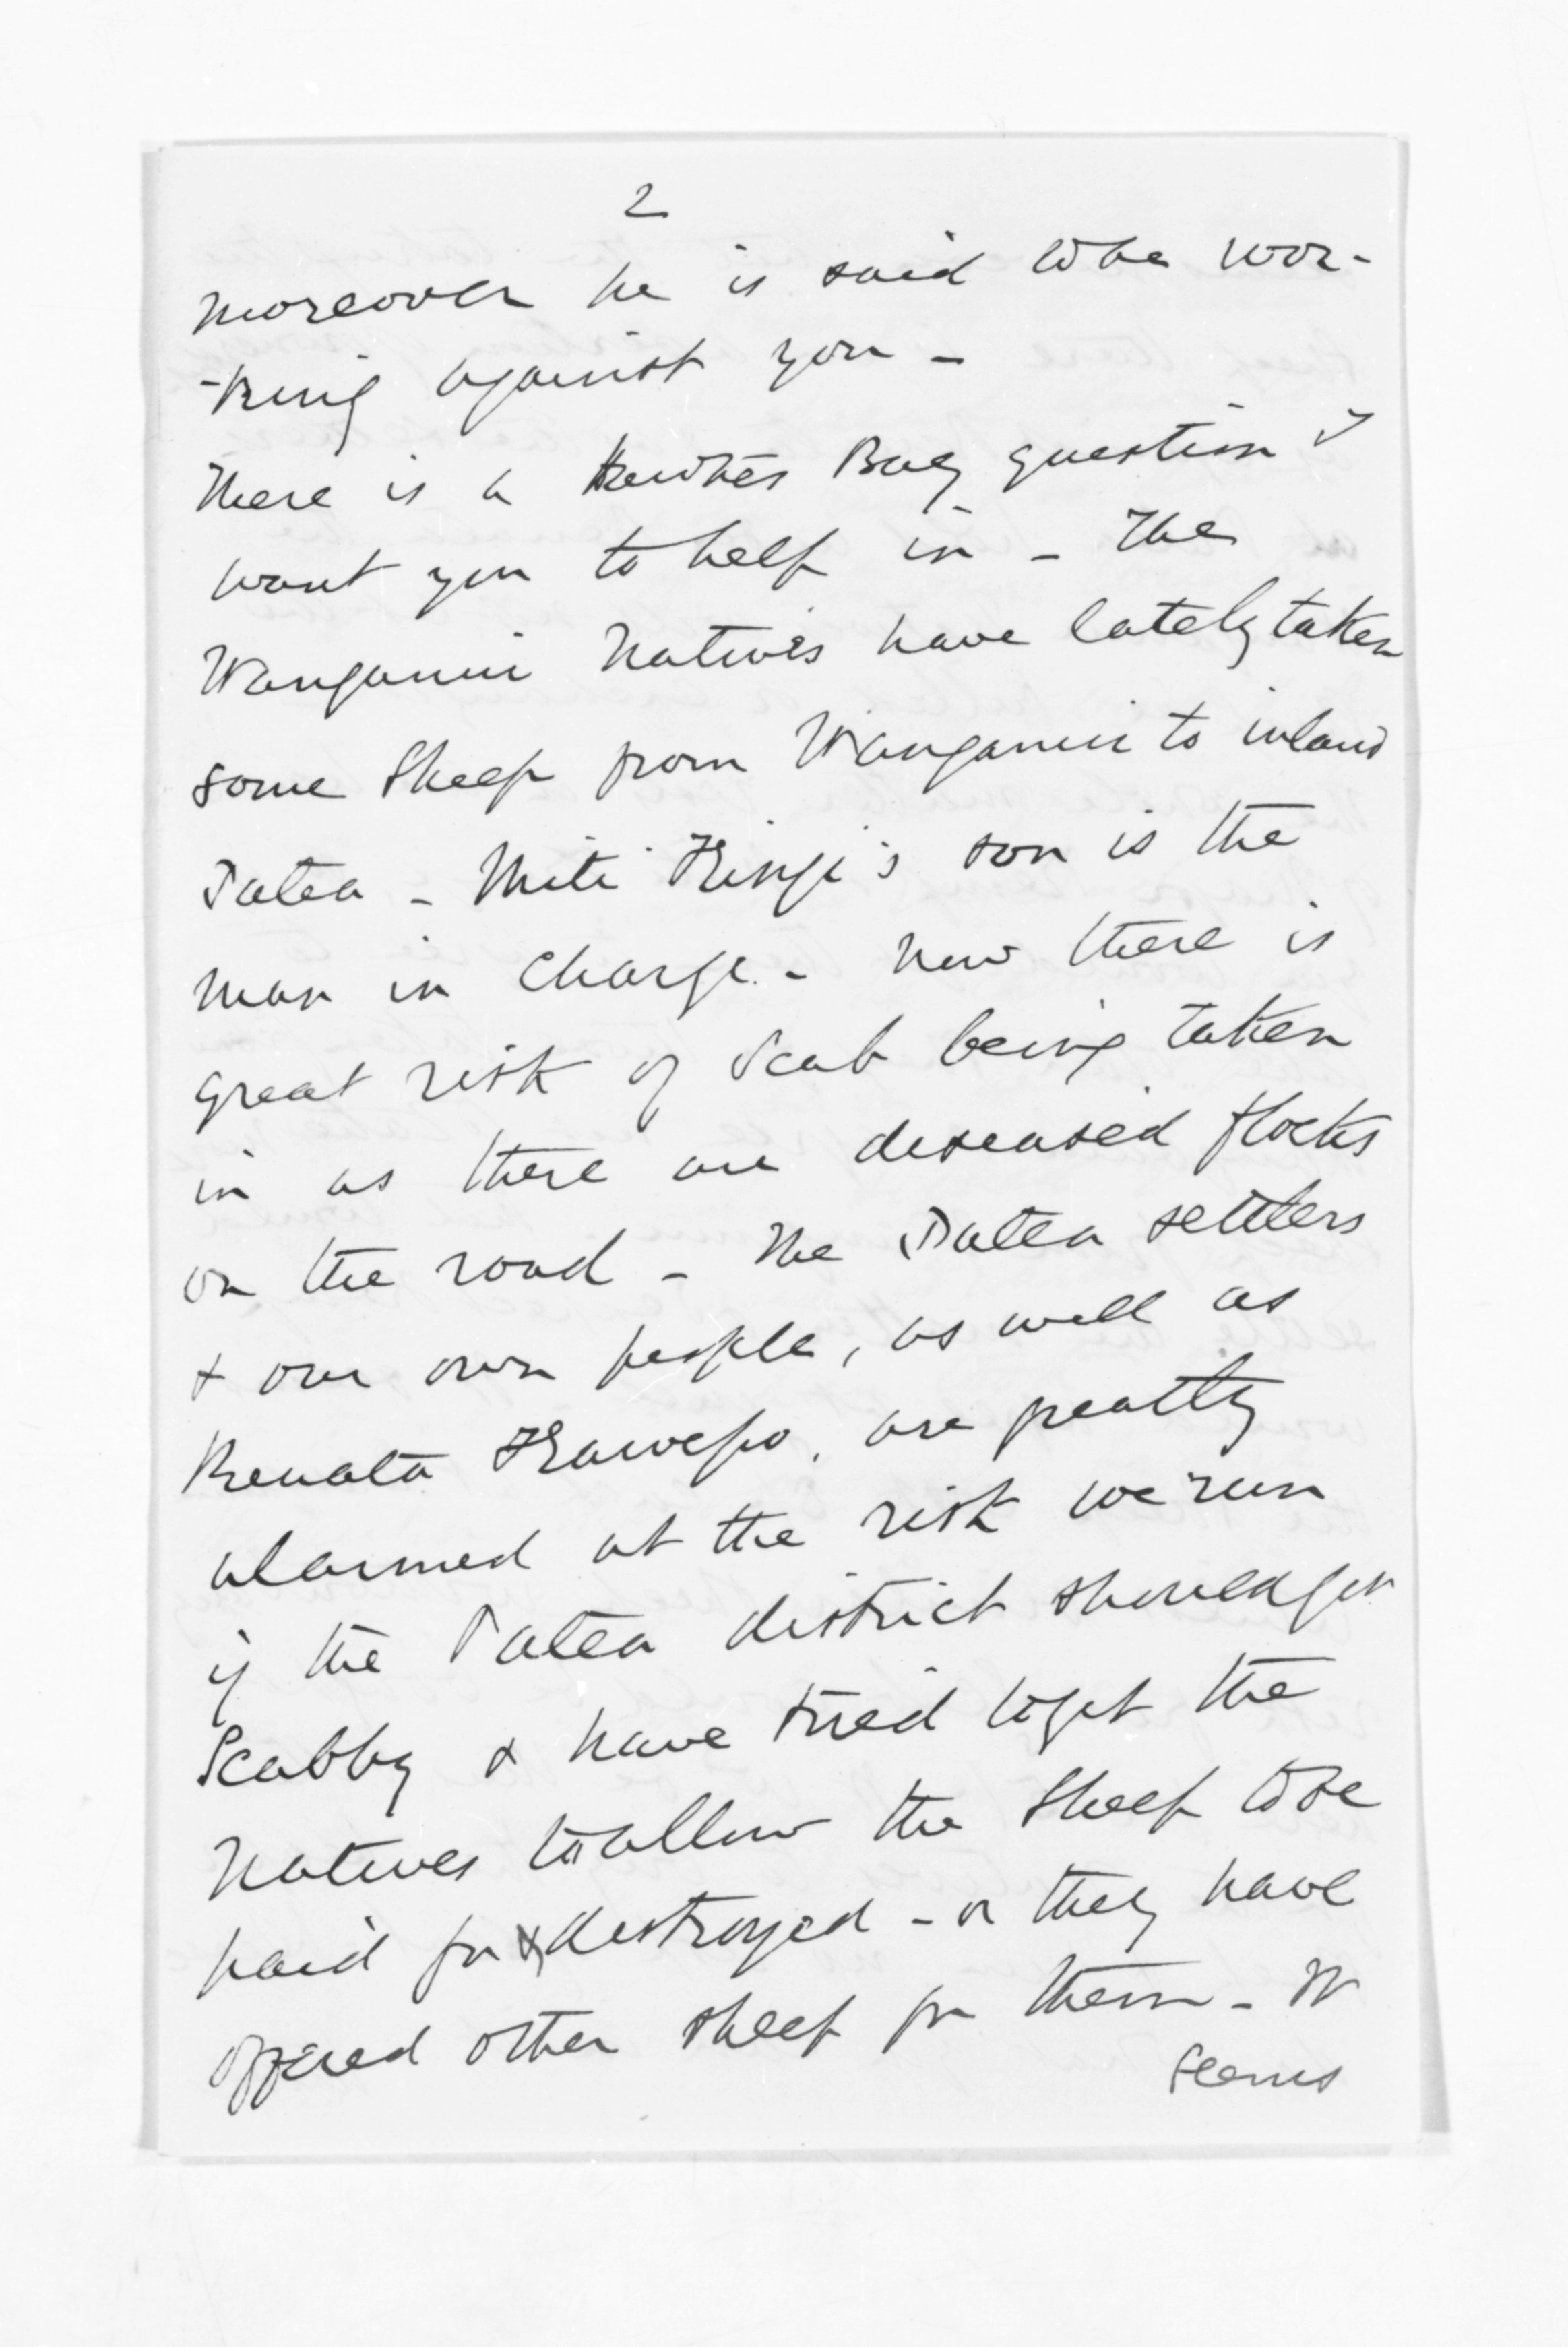 2
moreover he is said to be wor-
-king against you -
There is a Hawkes Bay question I
want you to help in - The
Wanganui Natives have lately taken
some sheep from Wanganui to inland
Patea - Mete Kingi's son is the
man in charge. - Now there is
great risk of Scab being taken
in as there are deseased flocks
on the road - The Patea settlers
& our own people, as well as
Renata Kawepo, are greatly
alarmed at the risk we run
if the Patea district should get
Scabby & have tried to get the
Natives to allow the sheep to be
paid for & destroyed - or they have
offered other sheep for them - It
seems